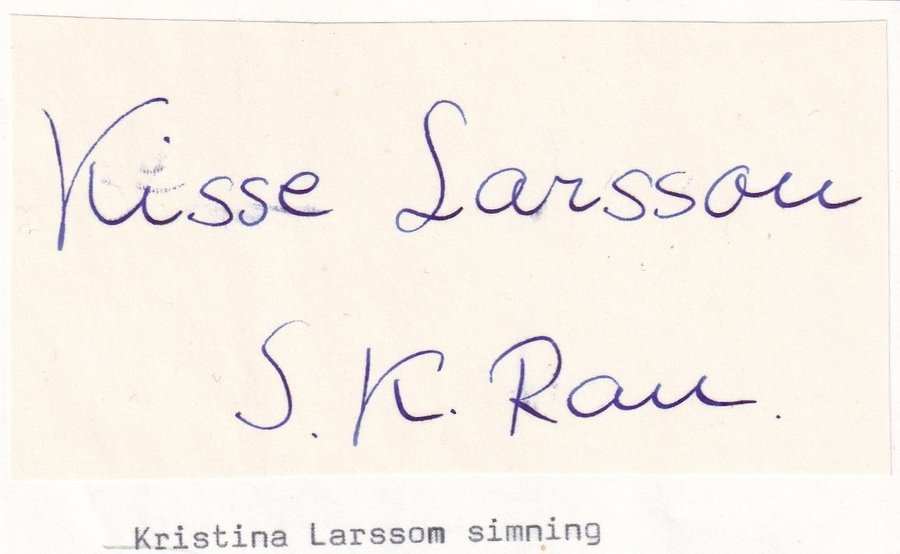 Kisse Larsson
S. K. Ran.
Kristina Larssom simning